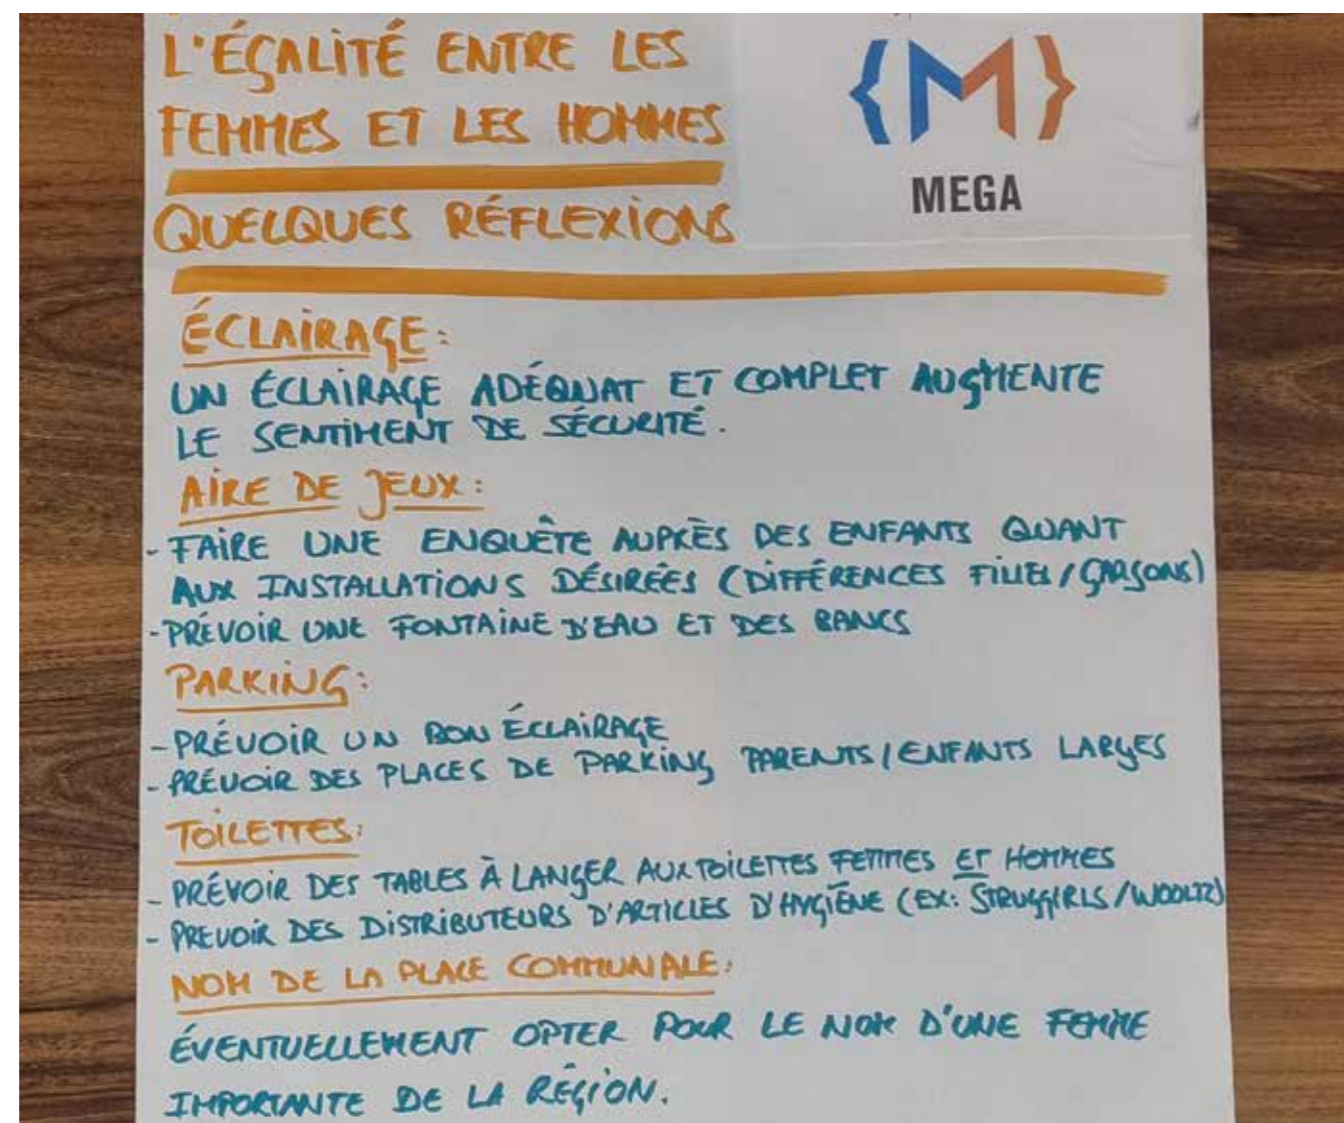 L'ÉGALITÉ ENTRE LES
FEMMES ET LES HOMMES
{M}
MEGA
QUELQUES RÉFLEXIONS
ÉCLAIRAGE:
UN ÉCLAIRAGE ADÉQUAT ET COMPLET AUGMENTE
LE SENTIMENT DE SÉCURITÉ.
AIRE DE JEUX:
- FAIRE UNE ENQUÊTE AUPRÈS DES ENFANTS QUANT
AUX INSTALLATIONS DÉSIRÉES (DIFFÉRENCES FILLES/GARSONS)
- PRÉVOIR UNE FONTAINE D'EAU ET DES BANCS
PARKING:
- PRÉVOIR UN BON ÉCLAIRAGE
- PRÉVOIR DES PLACES DE PARKING PARENTS/ENFANTS LARGES
TOILETTES:
- PRÉVOIR DES TABLES À LANGER AUX TOILETTES FEMMES ET HOMMES
- PREVOIR DES DISTRIBUTEURS D'ARTICLES D'HYGIÈNE (EX: STRUGGIRLS/WOOLTZ)
NOM DE LA PLACE COMMUNALE:
ÉVENTUELLEMENT OPTER POUR LE NOM D'UNE FEMME
IMPORTANTE DE LA RÉGION.